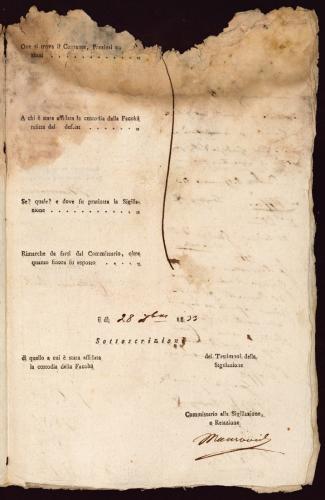 Ove si trova il Contante, Preziosi ec.
nzioni . . . . . . . . . . „
A chi è stata affidata la custodia della Facoltà
relitta dal defunt . . . . . . „
Se? quale? e dove fu praticata la Sigilla-
zione . . . . . . . . . . „
Rimarche da farsi dal Commissario, oltre
quanto finora fu esposto . . . . . „
li di 28 Xbre 18
Sottoscrizioni
di quello a cui è stata affidata
la custodia della Facoltà
dei Testimonj della
Sigillazione
Commissario alla Sigillazione,
e Relazione